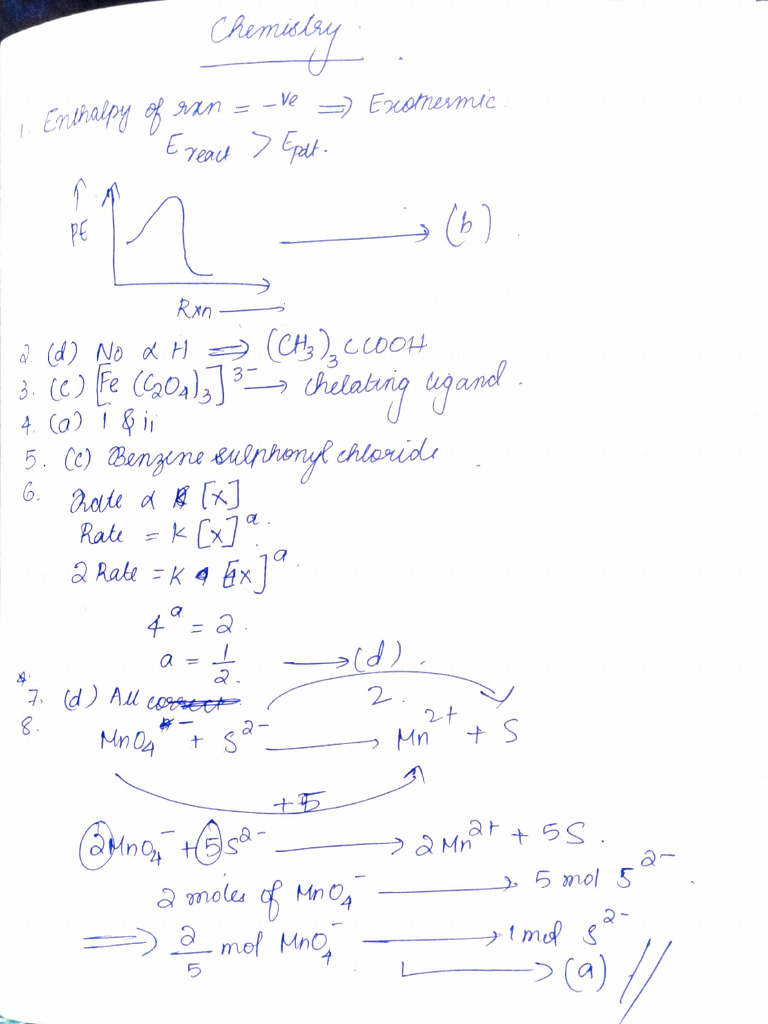 Chemistry.
1. Enthalpy of rxn = -ve ⇒ Exothermic.
E react > E pdt.
↑
PE → (b)
Rxn →
2 (d) No α H ⇒ (CH₃)₃CCOOH
3. (c) [Fe (C₂O₄)₃]³⁻ → chelating ligand.
4. (a) i & ii
5. (c) Benzene sulphonyl chloride
6. Rate α [x]
Rate = K [x]ᵃ.
2 Rate = K [4x]ᵃ.
4ᵃ = 2.
a = 1/2. → (d).
7. (d) All
2.
8. MnO₄⁻ + S²⁻ → Mn²⁺ + S
+5
2MnO₄⁻ + 5S²⁻ → 2Mn²⁺ + 5S.
2 moles of MnO₄⁻ → 5 mol S²⁻.
⇒ 2/5 mol MnO₄⁻ → 1 mol S²⁻
→ (a) //